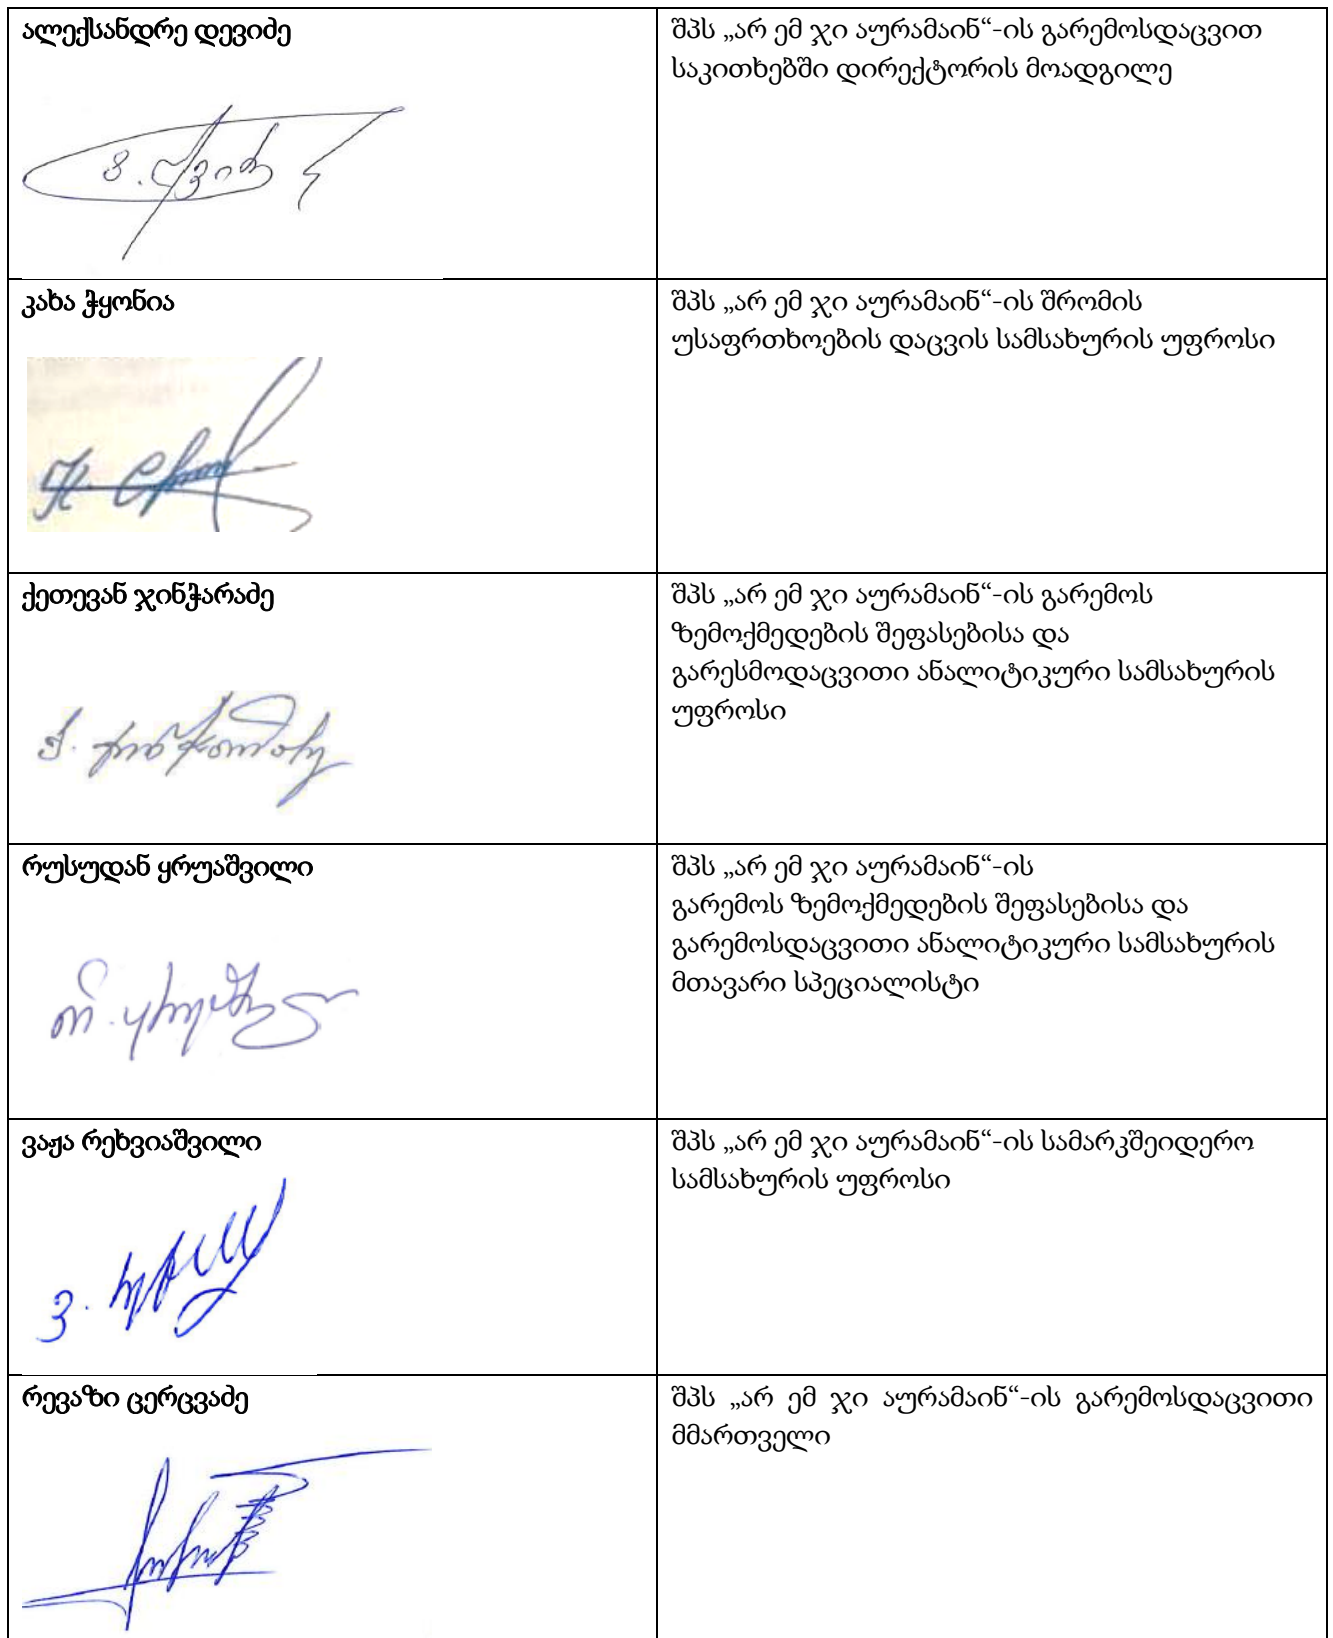 ალექსანდრე დევიძე
შპს „არ ემ ჯი აურამაინ“-ის გარემოსდაცვით
საკითხებში დირექტორის მოადგილე
კახა ჭყონია
შპს „არ ემ ჯი აურამაინ“-ის შრომის
უსაფრთხოების დაცვის სამსახურის უფროსი
ქეთევან ჯინჭარაძე
შპს „არ ემ ჯი აურამაინ“-ის გარემოს
ზემოქმედების შეფასებისა და
გარესმოდაცვითი ანალიტიკური სამსახურის
უფროსი
რუსუდან ყრუაშვილი
შპს „არ ემ ჯი აურამაინ“-ის
გარემოს ზემოქმედების შეფასებისა და
გარემოსდაცვითი ანალიტიკური სამსახურის
მთავარი სპეციალისტი
ვაჟა რეხვიაშვილი
შპს „არ ემ ჯი აურამაინ“-ის სამარკშეიდერო
სამსახურის უფროსი
რევაზი ცერცვაძე
შპს „არ ემ ჯი აურამაინ“-ის გარემოსდაცვითი
მმართველი